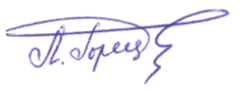 Л. Горец